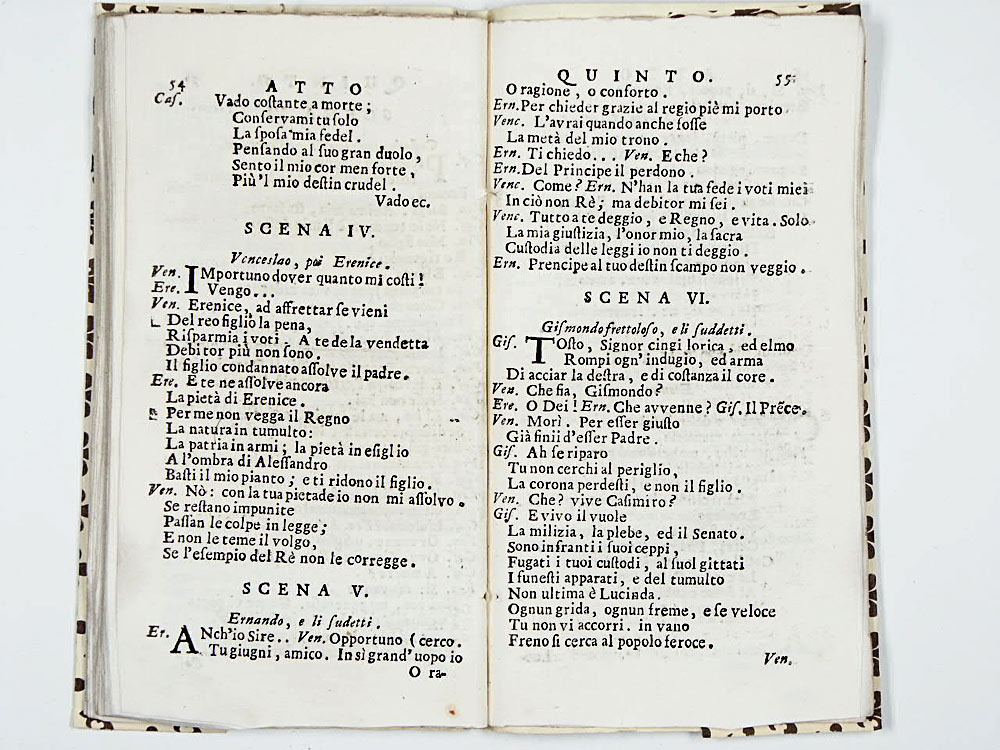 54 ATTO
Caſ. Vado coſtante a morte;
Conſervami tu ſolo
La ſpoſa mia fedel.
Penſando al ſuo gran duolo,
Sento il mio cor men forte,
Più'l mio deſtin crudel.
Vado ec.
SCENA IV.
Venceslao, poi Erenice.
Ven. IMportuno dover quanto mi coſti!
Ere. Vengo...
Ven. Erenice, ad affrettar ſe vieni
Del reo figlio la pena,
Riſparmia i voti. A te de la vendetta
Debitor più non ſono.
Il figlio condannato aſſolve il padre.
Ere. E te ne aſſolve ancora
La pietà di Erenice.
Per me non vegga il Regno
La natura in tumulto:
La patria in armi; la pietà in eſiglio
A l'ombra di Aleſſandro
Baſti il mio pianto; e ti ridono il figlio.
Ven. Nò: con la tua pietade io non mi aſſolvo.
Se reſtano impunite
Paſſan le colpe in legge;
E non le teme il volgo,
Se l'eſempio del Rè non le corregge.
SCENA V.
Ernando, e li ſudetti.
Er. ANch'io Sire.. Ven. Opportuno (cerco.
Tu giugni, amico. In sì grand'uopo io
O ra-
QUINTO. 55
O ragione, o conforto.
Ern. Per chieder grazie al regio piè mi porto
Venc. L'avrai quando anche foſſe
La metà del mio trono.
Ern. Ti chiedo... Ven. E che?
Ern. Del Principe il perdono.
Venc. Come? Ern. N'han la tua fede i voti miei
In ciò non Rè; ma debitor mi ſei.
Venc. Tutto a te deggio, e Regno, e vita. Solo
La mia giuſtizia, l'onor mio, la ſacra
Cuſtodia delle leggi io non ti deggio.
Ern. Prencipe al tuo deſtin ſcampo non veggio.
SCENA VI.
Giſmondo frettoloſo, e li ſuddetti.
Giſ. TOſto, Signor cingi lorica, ed elmo
Rompi ogn'indugio, ed arma
Di acciar la deſtra, e di coſtanza il core.
Ven. Che fia, Giſmondo?
Ere. O Dei! Ern. Che avvenne? Giſ. Il Prẽce.
Ven. Morì. Per eſſer giuſto
Già finii d'eſſer Padre.
Giſ. Ah ſe riparo
Tu non cerchi al periglio,
La corona perdeſti, e non il figlio.
Ven. Che? vive Caſimiro?
Giſ. E vivo il vuole
La milizia, la plebe, ed il Senato.
Sono infranti i ſuoi ceppi,
Fugati i tuoi cuſtodi, al ſuol gittati
I funeſti apparati, e del tumulto
Non ultima è Lucinda.
Ognun grida, ognun freme, e ſe veloce
Tu non vi accorri. in vano
Freno ſi cerca al popolo feroce.
Ven.